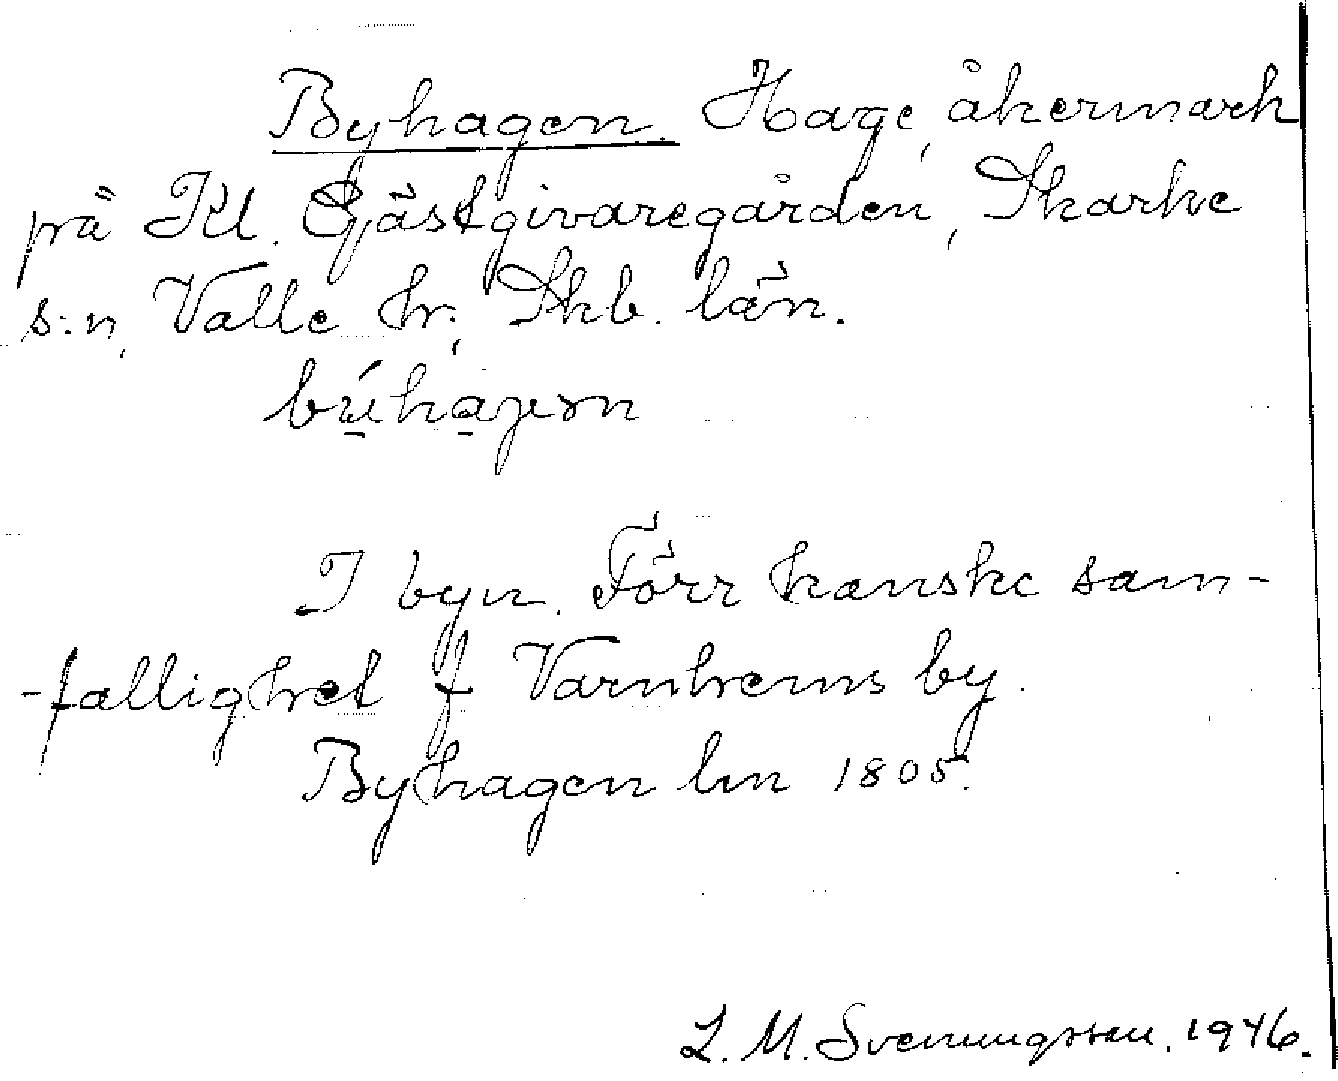 Byhagen. Hage, åkermark
på Kl. Gästgivaregården, Skarke
s:n, Valle hr, Skb. län.
býhạgɘn
I byn. Förr kanske sam-
-fällighet f Varnhems by.
Byhagen lm 1805.
L. M. Svenungsson. 1946.